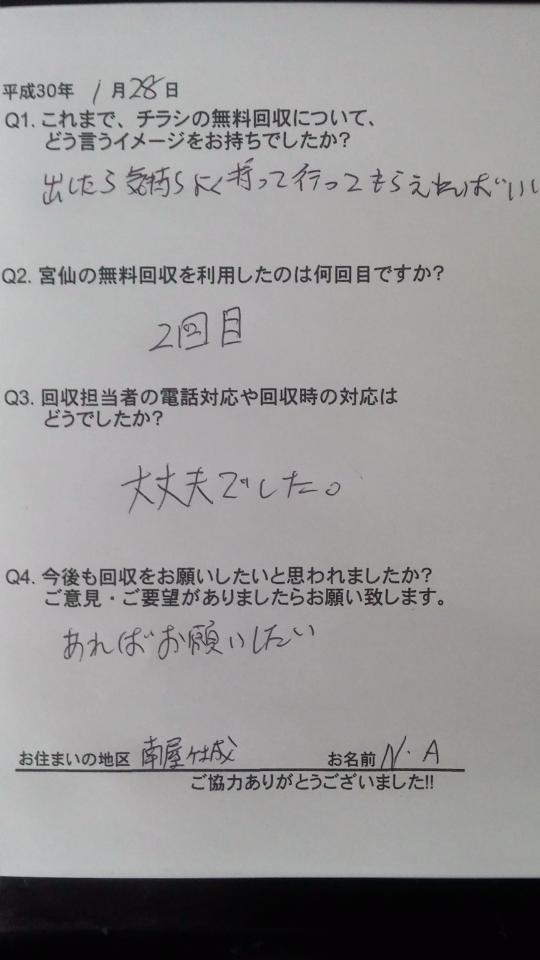 平成30年 1月28日
Q1. これまで、チラシの無料回収について、
どう言うイメージをお持ちでしたか?
出したら気持ちよく持って行ってもらえればいい
Q2. 宮仙の無料回収を利用したのは何回目ですか?
2回目
Q3. 回収担当者の電話対応や回収時の対応は
どうでしたか?
大丈夫でした。
Q4. 今後も回収をお願いしたいと思われましたか?
ご意見・ご要望がありましたらお願い致します。
あればお願いしたい
お住まいの地区 南屋 お名前 N.A
ご協力ありがとうございました!!